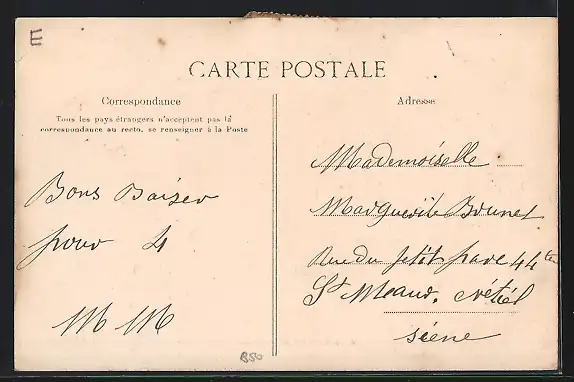 E
CARTE POSTALE
Correspondance
Tous les pays étrangers n'acceptent pas la
correspondance au recto, se renseigner à la Poste
Bons Baiser
pour 4
M M
B50
Adresse
Mademoiselle
Marguerite Brunet
Rue du petit parc 44 ter
St Meaur. crétiel
séene